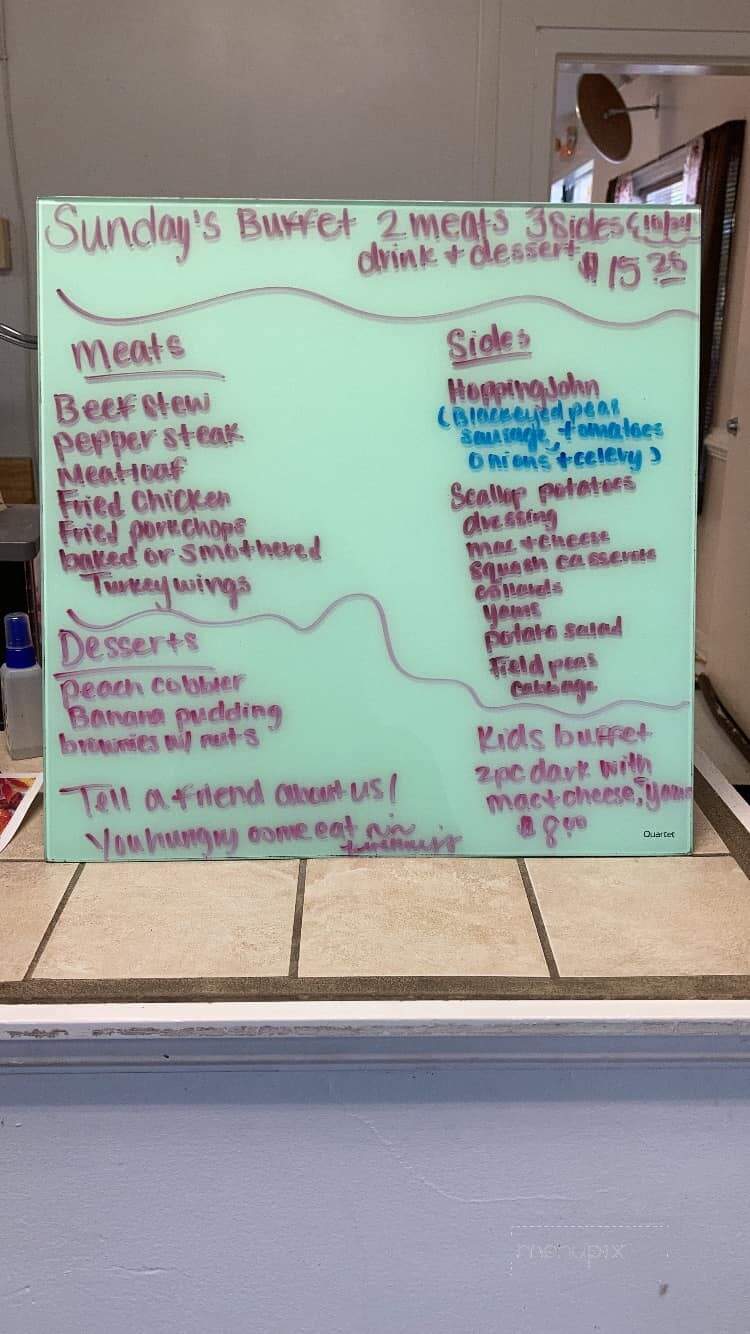 Sunday's Buffet 2 meats 3 Sides
drink + dessert
$15 28
Meats
Beef stew
pepper steak
Meatloaf
Fried Chicken
Fried porkchops
baked or smothered
Turkey wings
Desserts
peach cobbler
Banana pudding
brownies w/ nuts
Tell a friend about us!
You hungry come eat
Sides
Hopping John
(Blackeyed peas
sausage, tomatoes
onions + celery)
Scallop potatoes
dressing
mac + cheese
squash casserole
collards
yams
potato salad
Field peas
cabbage
Kids buffet
2pc dark with
mac + cheese, yams
$8 00
Quartet
menupix